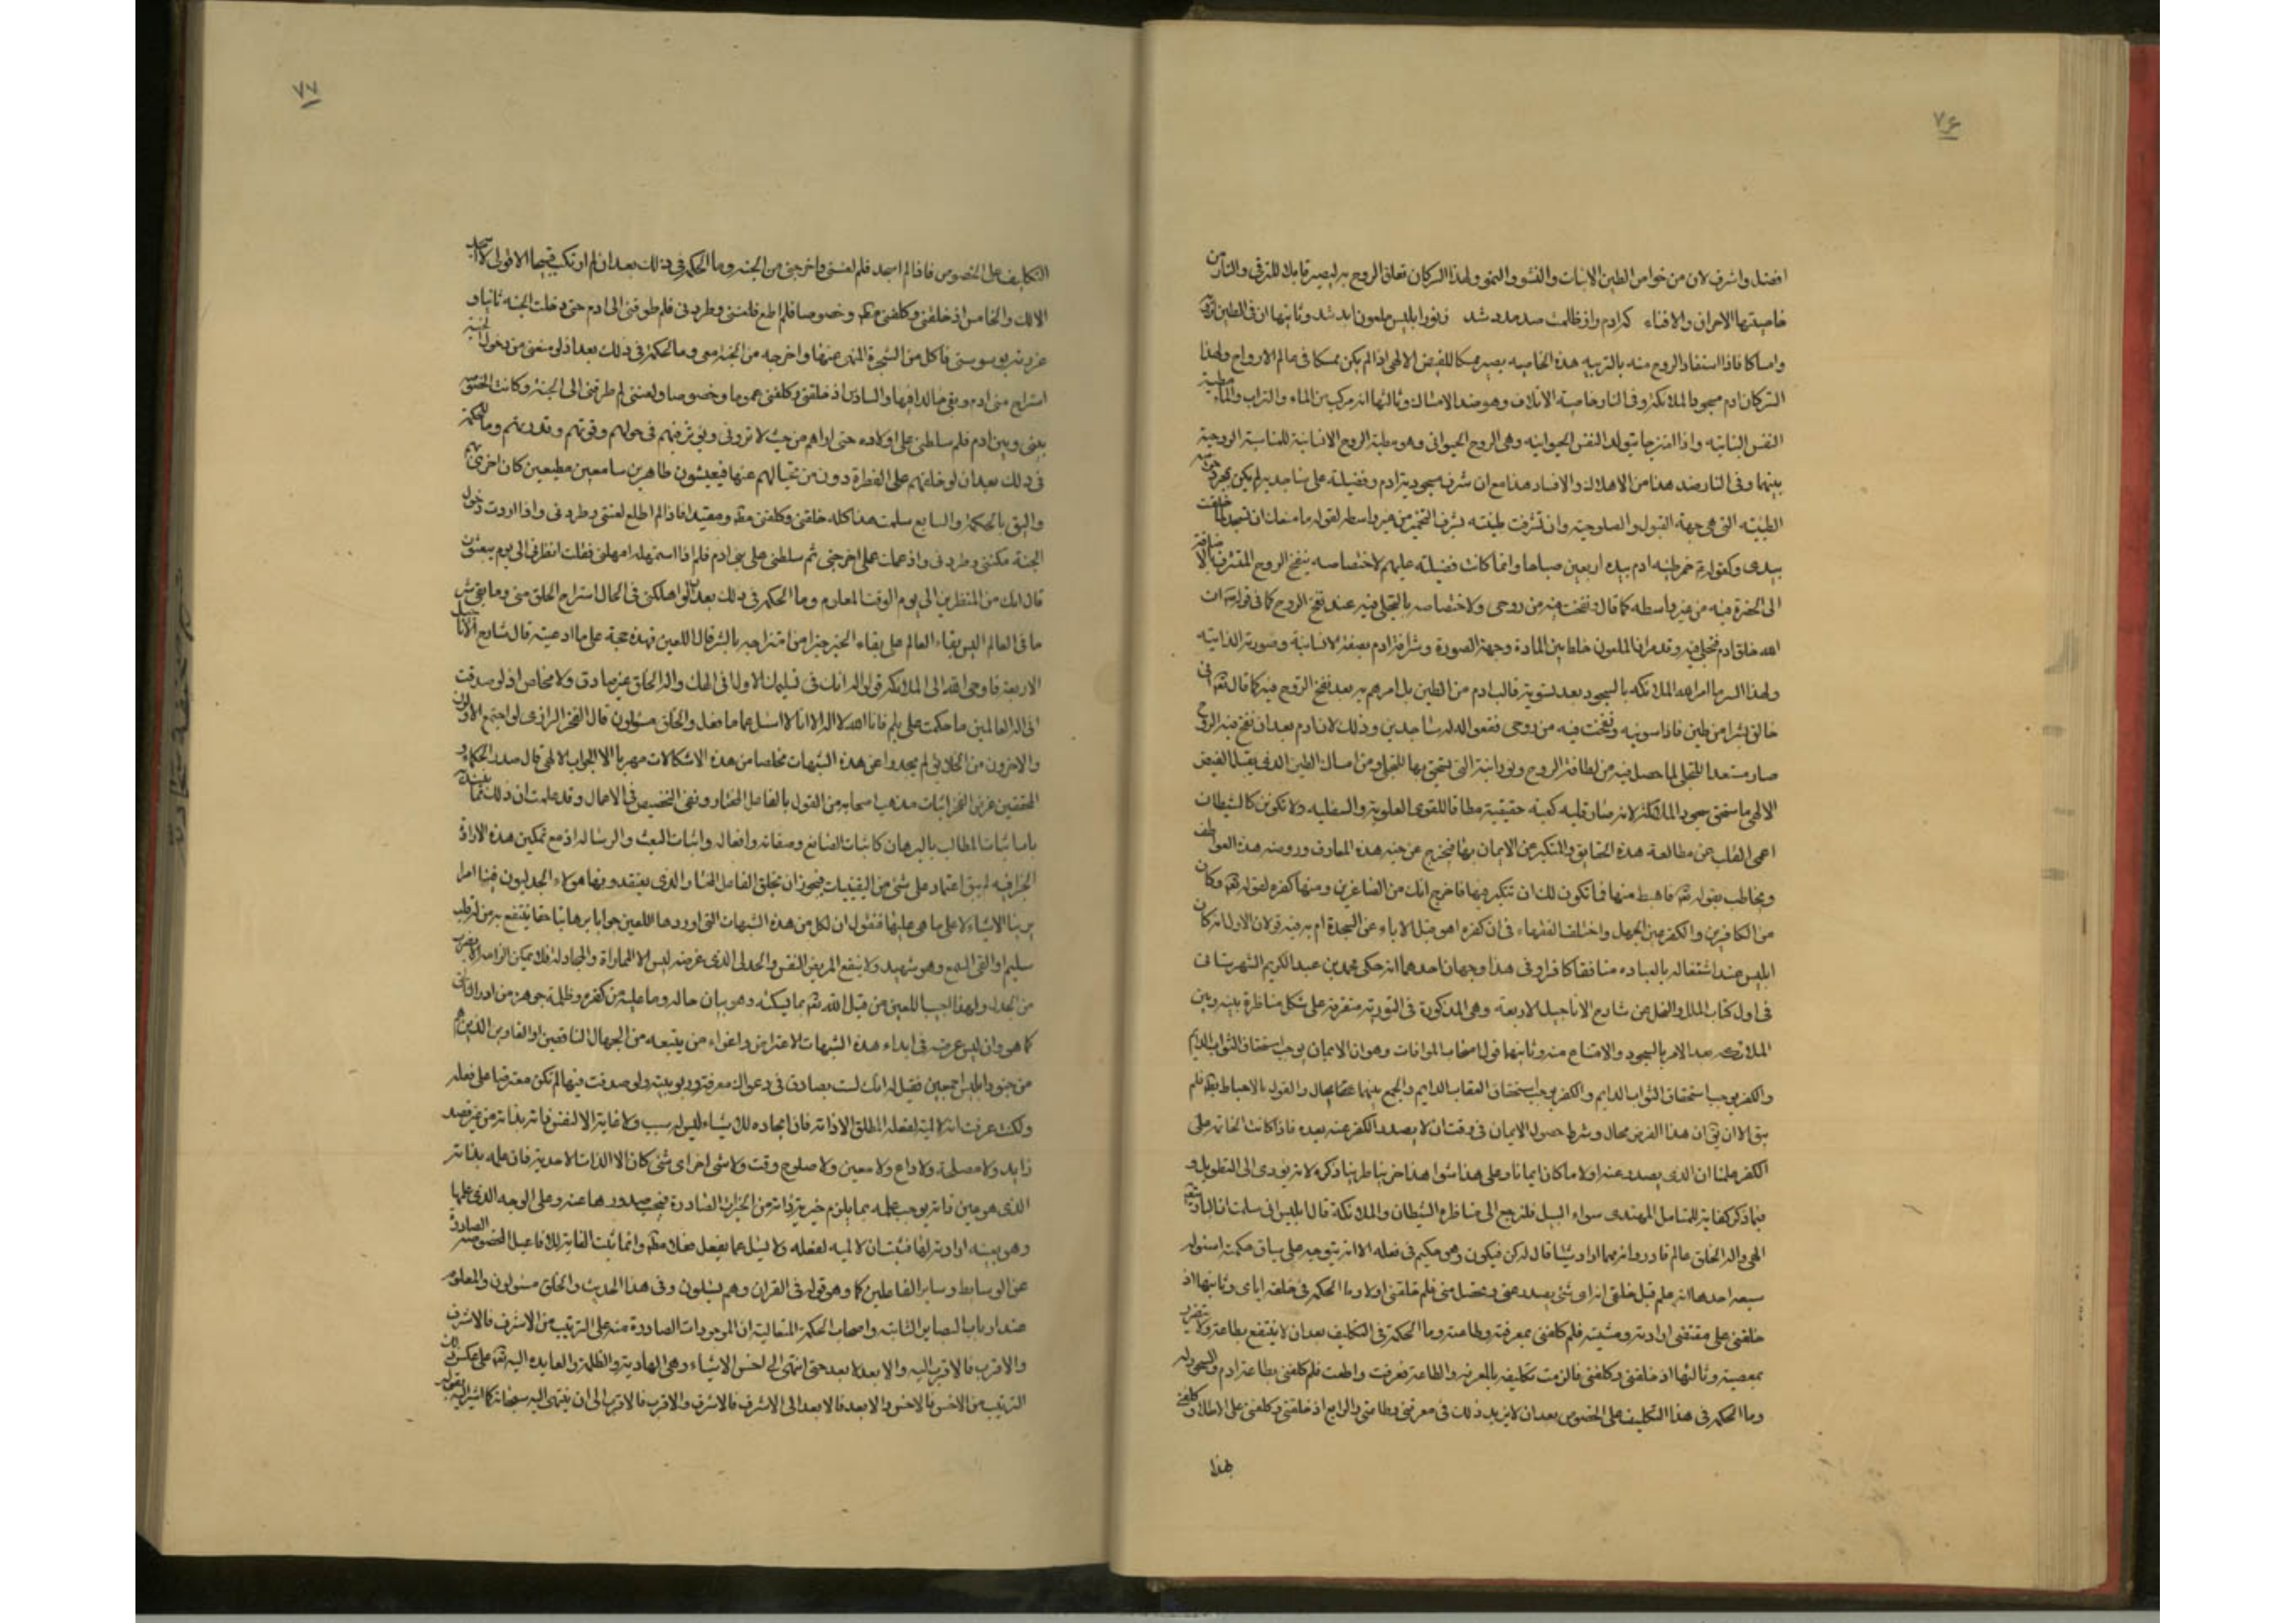 ٧۶
افضل واشرف لان من خواص الطين الانبات والنشو والنمو ولهذا السر كان تعلق الروح به ليصير قابلا للترقى والنار من
خاصيتها الاحراق والافناء كرادم را ز ظلمت صد مدد شد ز نور ابليس ملعون ابد شد وثانيها ان فى الطين
وامساكا فاذا استفاد الروح منه بالتربيه هذه الخاصيه يصير ممسكا للفيض الالهى اذ لم يكن ممسكا فى عالم الارواح ولهذا
السر كان ادم مسجودا للملائكة وفى النار خاصية الاتلاف وهو ضد الامساك وثالثها انه مركب من الماء والتراب والماء مطية
النفس النباتيه واذا امتزجا يتولد النفس الحيوانيه وهى الروح الحيوانى وهو مطية الروح الانسانية للمناسبة الروحية
بينهما وفى النار ضد هذا من الاهلاك والافساد هذا مع ان شرف مسجودية ادم وفضيلته على ساجديه لم يكن بمجرد
الطينيه التى هى جهة القبول والصلوحية وان تشرفت طينته بشرف التخمير من غير واسطه لقوله ما منعك ان تسجد لما خلقت
بيدى وكقوله خمر طينه ادم بيده اربعين صباحا وانما كانت فضيلته عليهم لاختصاصه بنفخ الروح المتشرف بالاضافة
الى الحضرة فيه من غير واسطه كما قال ونفخت فيه من روحى ولاختصاصه بالتجلى فيه عند نفخ الروح كما فى قوله ان
الله خلق ادم فتجلى فيه وقد مر ان الملعون خلط بين المادة وجهة الصورة وشرافة ادم بصفته الانسانية وصورته الذاتيه
ولهذا السر ما امر الله الملائكه بالسجود بعد تسوية قالب ادم من الطين بل امرهم به بعد نفخ الروح فيه كما قال تعالى انى
خالق بشرا من طين فاذا سويته ونفخت فيه من روحى فقعوا له ساجدين وذلك لان ادم بعد ان نفخ فيه الروح
صار مستعدا للتجلى لما حصل فيه من لطافة الروح ونورانيته التى يستحق بها للتجلى ومن امساك الطين الذى يقبل الفيض
الالهى ما استحق سجود الملائكة لانه صار قلبه كعبة حقيقية مطافا للقوى العلوية والسفليه ولا تكونن كالشيطان
اعمى القلب عن مطالعة هذه الحقايق والمتكبر عن الايمان بها فتخرج عن جنه هذه المعارف وروضه هذه العواطف
وتخاطب بقوله تعالى فاهبط منها فما تكون لك ان تتكبر فيها فاخرج انك من الصاغرين ومنها كفره لقوله تعالى وكان
من الكافرين والكفر عين الجهل واختلف الفقهاء فى ان كفره اهو قبل الاباء عن السجدة ام به فيه قولان الاول انه كان
ابليس عند اشتغاله بالعباده منافقا كافرا وفى هذا وجهان احدهما انه حكى محمد بن عبد الكريم الشهرستانى
فى اول كتاب الملل والنحل عن شارح الاناجيل الاربعه وهى المذكورة فى التورية متفرقة على شكل مناظرة بينه وبين
الملائكه بعد الامر بالسجود والامتناع منه وثانيها قول اصحاب الموافات وهو ان الايمان يوجب استحقاق الثواب الدايم
والكفر يوجب استحقاق العقاب الدايم والجمع بينهما محال والقول بالاحباط فلم
يبق الا ان هذا الفرض محال وشرط حصول الايمان فى وقت ان لا يصدر الكفر عنه بعده فاذا كانت الخاتمه على
الكفر علمنا ان الذى يصدر عنه اولا ما كان ايمانا وعلى هذا
فيما ذكر كفاية للمتامل المهتدى سواء السبيل فلنرجع الى مناظره الشيطان والملائكة قال ابليس انى سلمت ان البارى تعالى
الهى واله الخلق عالم قادر وانه مهما اراد شيئا قال له كن فيكون وهو حكيم فى فعله الا انه يتوجه على سياق حكمته اسئوله
سبعه احدها انه علم قبل خلقى انه اى شئ يصدر عنى ويحصل منى فلم خلقنى اولا وما الحكمه فى خلقه اياى وثانيها اذ
خلقنى على مقتضى ارادته ومشيته فلم كلفنى بمعرفته وطاعته وما الحكمة فى التكليف بعد ان لا ينتفع بطاعة ولا يتضرر
بمعصية وثالثها اذ خلقنى وكلفنى فالزمت تكليفه بالمعرفة والطاعة فعرفت واطعت فلم كلفنى بطاعة ادم والسجود له
وما الحكمه فى هذا التكليف على الخصوص بعد ان لا يزيد ذلك فى معرفتى وطاعتى والرابع اذ خلقنى وكلفنى على الاطلاق وكلفنى
بهذا
٧٧
التكليف على الخصوص فاذا لم اسجد فلم لعننى واخرجنى من الجنه وما الحكم فى ذلك بعد ان لم ارتكب قبيحا الا قولى لا اسجد
الا لك والخامس اذ خلقنى وكلفنى مطلقا وخصوصا فلم اطع فلعننى وطردنى فلم طرقنى الى ادم حتى دخلت الجنه ثانيا و
غررته بوسوستى فاكل من الشجرة المنهى عنها واخرجه من الجنه معى وما الحكمة فى ذلك بعد ان لو منعنى من دخول الجنة
استراح منى ادم وبقى خالدا فيها والسادس اذ خلقنى وكلفنى عموما وخصوصا ولعننى ثم طرقنى الى الجنة وكانت الخصومه
بينى وبين ادم فلم سلطنى على اولاده حتى اراهم من حيث لا يرونى ويؤثر فيهم فى حولهم وقوتهم وقدرتهم وما الحكمة
فى ذلك بعد ان لو خلقهم على الفطرة دون من يختالهم عنها فيعيشون طاهرين سامعين مطيعين كان احرى بهم
واليق بالحكمة والسابع سلمت هذا كله خلقنى وكلفنى مطلقا ومقيدا فاذا لم اطلع لعننى وطردنى واذا اردت دخول
الجنة مكننى وطردنى واذ عملت عملى اخرجنى ثم سلطنى على بنى ادم فلم اذا استمهلته امهلنى فقلت انظرنى الى يوم يبعثون
قال انك من المنظرين الى يوم الوقت المعلوم وما الحكمه فى ذلك بعد ان لو اهلكنى فى الحال استراح الخلق منى وما بقى شر
ما فى العالم اليس بقاء العالم على بقاء الخير خيرا من امتزاجه بالشر قال اللعين فهذه حجة على ما ادعيته قال شارح الاناجيل
الاربعة فاوحى الله الى الملائكه قولوا له انك فى تسليمك الاول انى الهك واله الخلق غير صادق ولا مخلص اذ لو صدقت
انى اله العالمين ما حكمت على بلم فانا الله لا اله الا انا لا اسئل عما افعل والخلق مسئولون قال الفخر الرازى لو اجتمع الاولون
والاخرون من الخلايق لم يجدوا عن هذه الشبهات مخلصا من هذه الاشكالات مهربا الا الجواب الالهى قال صدر الحكماء و
المحققين غرض الفخر اثبات مذهب اصحابه من القول بالفاعل المختار ونفى التخصيص فى الاعمال وقد علمت ان ذلك مما
باب اثبات المطالب بالبرهان كاثبات الصانع وصفاته وافعاله واثبات البعث والرساله اذ مع تمكين هذه الارادة
الجزافيه لم يبق اعتماد على شئ من اليقينيات فيجوز ان يخلق الفاعل المختار الذى يعتقدونها هولاء الجدليون فينا امرا
يرينا الاشياء لا على ما هى عليها فنقول ان لكل من هذه الشبهات التى اوردها اللعين جوابا برهانيا حقا ينتفع به من له قلب
سليم او القى السمع وهو شهيد ولا ينتفع المريض النفس والجدلى الذى غرضه ليس الا المماراة والمجادله فلا يمكن الزامه الا بضرب
من الجدل ولهذا اجيب اللعين من قبل الله تعالى بما يسكته وهو بيان حاله وما عليه من كفره وظلمة جوهره من ادراك
كما هو وان ليس غرضه فى ابداء هذه الشبهات الا اعتراض واغواء من يتبعه من الجهال الناقصين او الغاوين الذين هم
من جنود ابليس اجمعين فقيل له انك لست بصادق فى دعواك معرفته وربوبيته ولو صدقت فيها لم تكن معترضا على فعله
ولكنت عرفت انه لا لمية لفعله المطلق الا ذاته فان ايجاده للاشياء ليس له سبب ولا غاية الا نفس ذاته بذاته من غير قصد
زايد ولا مصلحة ولا داع ولا معين ولا صلوح وقت ولا شئ اخر اى شئ كان الا الذات الاحدية فان علمه بذاته
الذى هو عين ذاته يوجب علمه بما يلزم خيرية ذاته من الخيرات الصادرة فيجب صدورها عنه وعلى الوجه الذى علمها
وهو بعينه ارادته لها فثبت ان لا لميه لفعله ولا يسئل عما يفعل فعلا مطلقا وانما تثبت الغاية للافاعيل المخصوصه الصادرة
عن الوسايط وساير الفاعلين كما هو قوله فى القران وهم يسئلون وفى هذا الحديث والخلق مسئولون والمعلوم
عند ارباب البصاير الثاقبه واصحاب الحكمة المتعالية ان الموجودات الصادرة منه على الترتيب من الاشرف فالاشرف
والاقرب فالاقرب اليه والا بعد لا بعد حتى انتهى الى اخس الاشياء وهى الهاوية والظلمة والعايده اليه تعالى على عكس ذلك
الترتيب من الاخس فالاخس والابعد فالابعد الى الاشرف فالاشرف والاقرب فالاقرب الى ان ينتهى اليه سبحانه كما اشير اليه بقوله